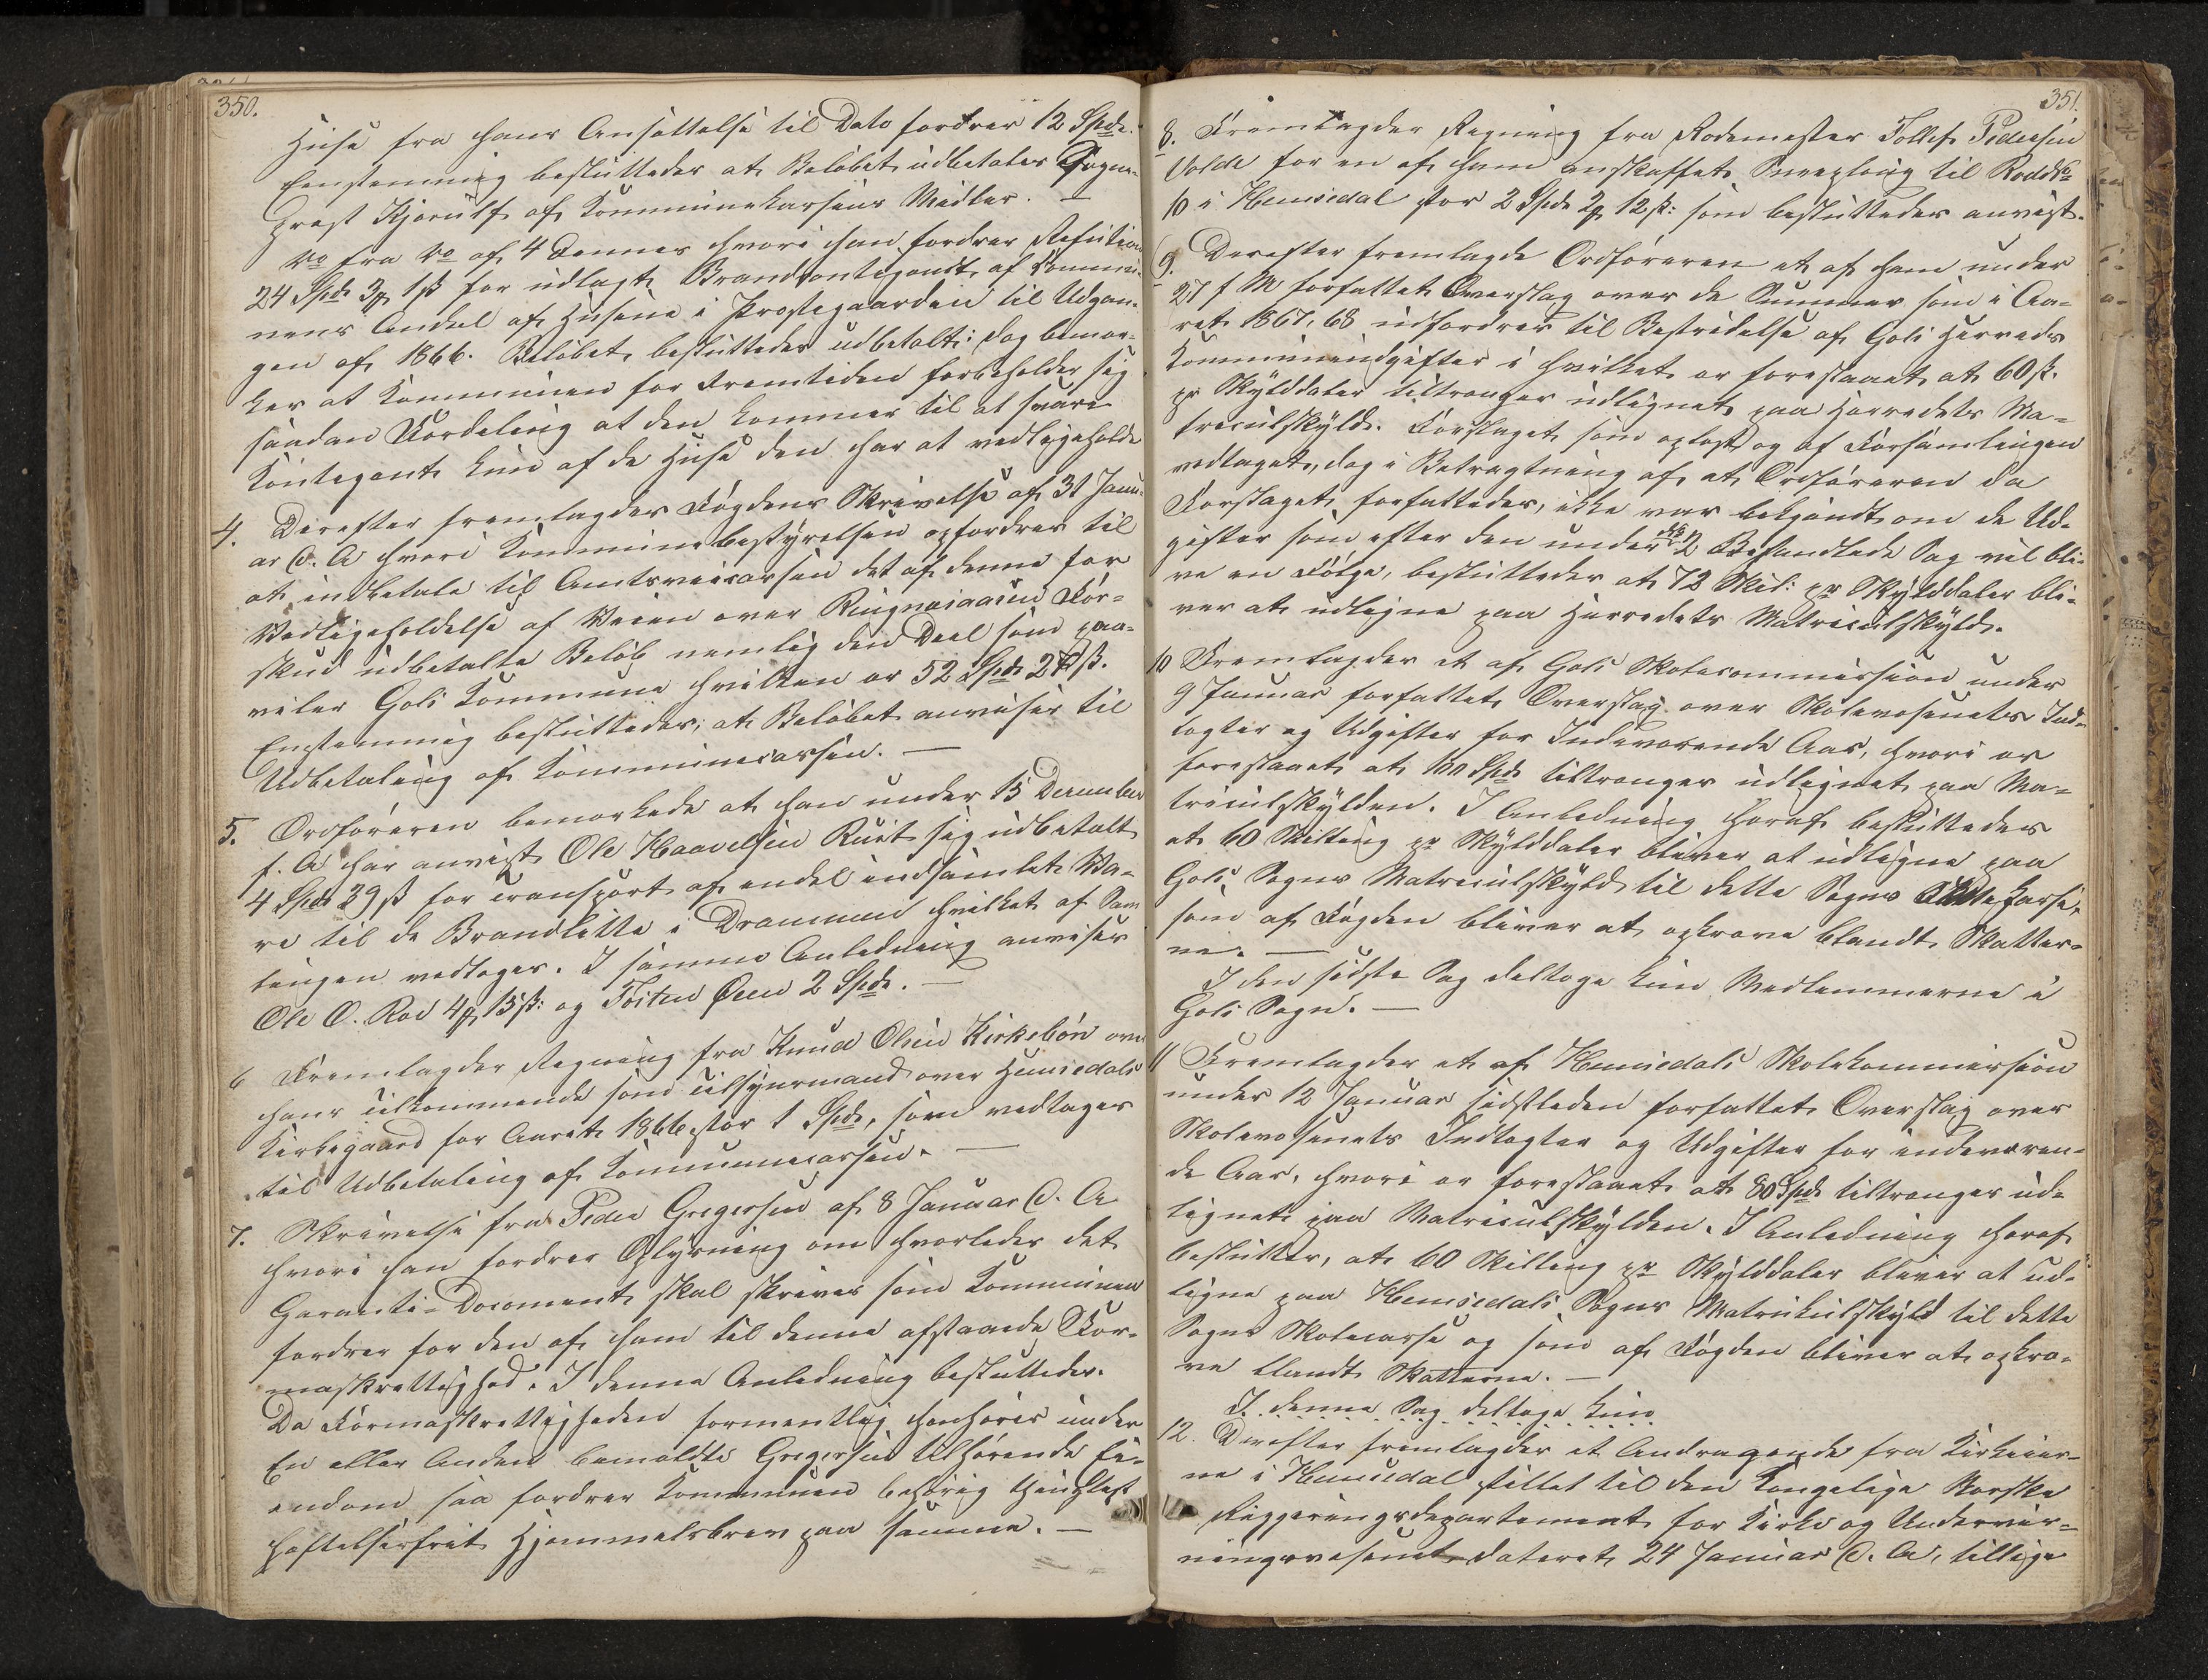 350.
Huse fra hans Ansættelse til Dato fordrer 12 Spd.
Eenstemmig besluttedes at Beløbet udbetales Sogne-
prest Kjerulf af Kommunekassens Midler. —
Do fra Do af 4 Dennes hvori han fordrer Refution
24 Spd 3 1 ß for udlagt Brandcontegent af Kommu-
nens Andeel af Husene i Prestegaarden til Udgan-
gen af 1866. Beløbet besluttedes udbetalt: dog bemær-
kes at Kommunen for Fremtiden forbeholder sig
saadan Fordeling at den kommer til at svare
Kontegent kun af de Huse den har at vedligeholde
4. Derefter fremlagdes Fogdens Skrivelse af 31 Janu-
ar d. A hvori Kommunebestyrelsen opfordres til
at indbetale til Amtsveicassen det af denne for
Vedligeholdelse af Veien over Ringneiaasen For-
skud udbetalte Beløb nemlig den Deel som paa-
viler Gols Kommune hvilken er 52 Spd 2 ß.
Enstemmig besluttedes, at Beløbet anvises til
Udbetaling af Kommunecassen. —
5. Ordføreren bemærkede at han under 15 December
f. A har anvist Ole Haavelsen Ruet sig udbetalt
4 Spd 39 ß for Transport af endel indsamlet Va-
re til de Brandlidte i Drammen hvilket af Sam
lingen vedtoges. I samme Anledning anvises
Ole O. Roe 4 15 ß: og Tosten Øen 2 Spd. —
6 Fremlagdes Regning fra Knud Olsen Kirkebøn over
hans Tilkommende som Tilsynsmand over Hemsedals
Kirkegaard for Aaret 1866 stor 1 Spd, som vedtages
til Udbetaling af Kommunecassen. —
7. Skrivelse fra Peder Gregersen af 8 Januar d. A
hvori han fordrer Oplysning om hvorledes det
Garanti-Document skal skrives som Kommunen
fordrer for den af ham til denne afstaaede For-
maskrettighed. I denne Anledning besluttedes.
Da Formaskrettigheden formentlig henhører under
En eller Anden bemeldte Gregersen tilhørende Ei-
endom saa fordrer Kommunen behørig thinglæst
hæftelsesfrit Hjemmelsbrev paa samme. —
351.
8. Fremlagdes Regning fra Rodemester Tollef Pedersen
Volde for en af ham anskaffet Sneeploug til Rodde
10 i Hemsedal stor 2 Spd 2 12 ß: som besluttedes anvist.
9. Derefter fremlagde Ordføreren et af ham under
27 f M forfattet Overslag over de Summer som i Aa-
ret 1867, 68 udfordres til Bestridelse af Gols Herreds
Kommuneudgifter i hvilket er forestaaet at 60 ß.
pr Skylddaler tiltrænges udlignet paa Herredets Ma-
triculskyld. Forslaget som oplæst og af Forsamlingen
vedtaget, dog i Betragtning af, at Ordføreren da
Forslaget forfattedes, ikke var bekjendt om de Ud-
gifter som efter den under Behandlede Sag vil bli-
ve en Følge, besluttedes at 72 Skil: pr Skylddaler bli-
ver at udligne paa Herredets Matriculskyld.
10 Fremlagdes et af Gols Skolecommission under
9 Januar forfattet Overslag over Skolevæsenets Ind-
tægter og Udgifter for Indeværende Aar, hvori er
forestaaet at 100 Spd tiltrænges udlignet paa Ma-
triculskylden. I Anledning heraf besluttedes
at 60 Skilling pr Skylddaler bliver at udligne paa
Gols Sogns Matriculskyld til dette Sogns kasse,
som af Fogden bliver at opkræve blandt Skatter-
ne. —
I den sidste Sag deltoge kun Medlemmerne i
Gols Sogn. —
11 Fremlagdes et af Hemsedals Skolekommission
under 12 Januar sidstleden forfattet Overslag over
Skolevæsenets Indtægter og Udgifter for indeværen-
de Aar, hvori er forestaaet at 80 Spd tiltrænges ud-
lignet paa Matriculskylden. I Anledning heraf
beslutter, at 60 Skilling pr Skylddaler bliver at ud-
ligne paa Hemsedals Sogns Matrikulskyld til dette
Sogns Skolecasse og som af Fogden bliver at opkræ-
ve blandt Skatterne. —
I denne Sag deltoge kun
12. Derefter fremlagdes et Andragende fra Kirkeeier-
ne i Hemsedal stillet til den Kongelige Norske
Regjeringsdepartement for Kirke og Undervis-
ningsvæsenet dateret 24 Januar d. A, tillige